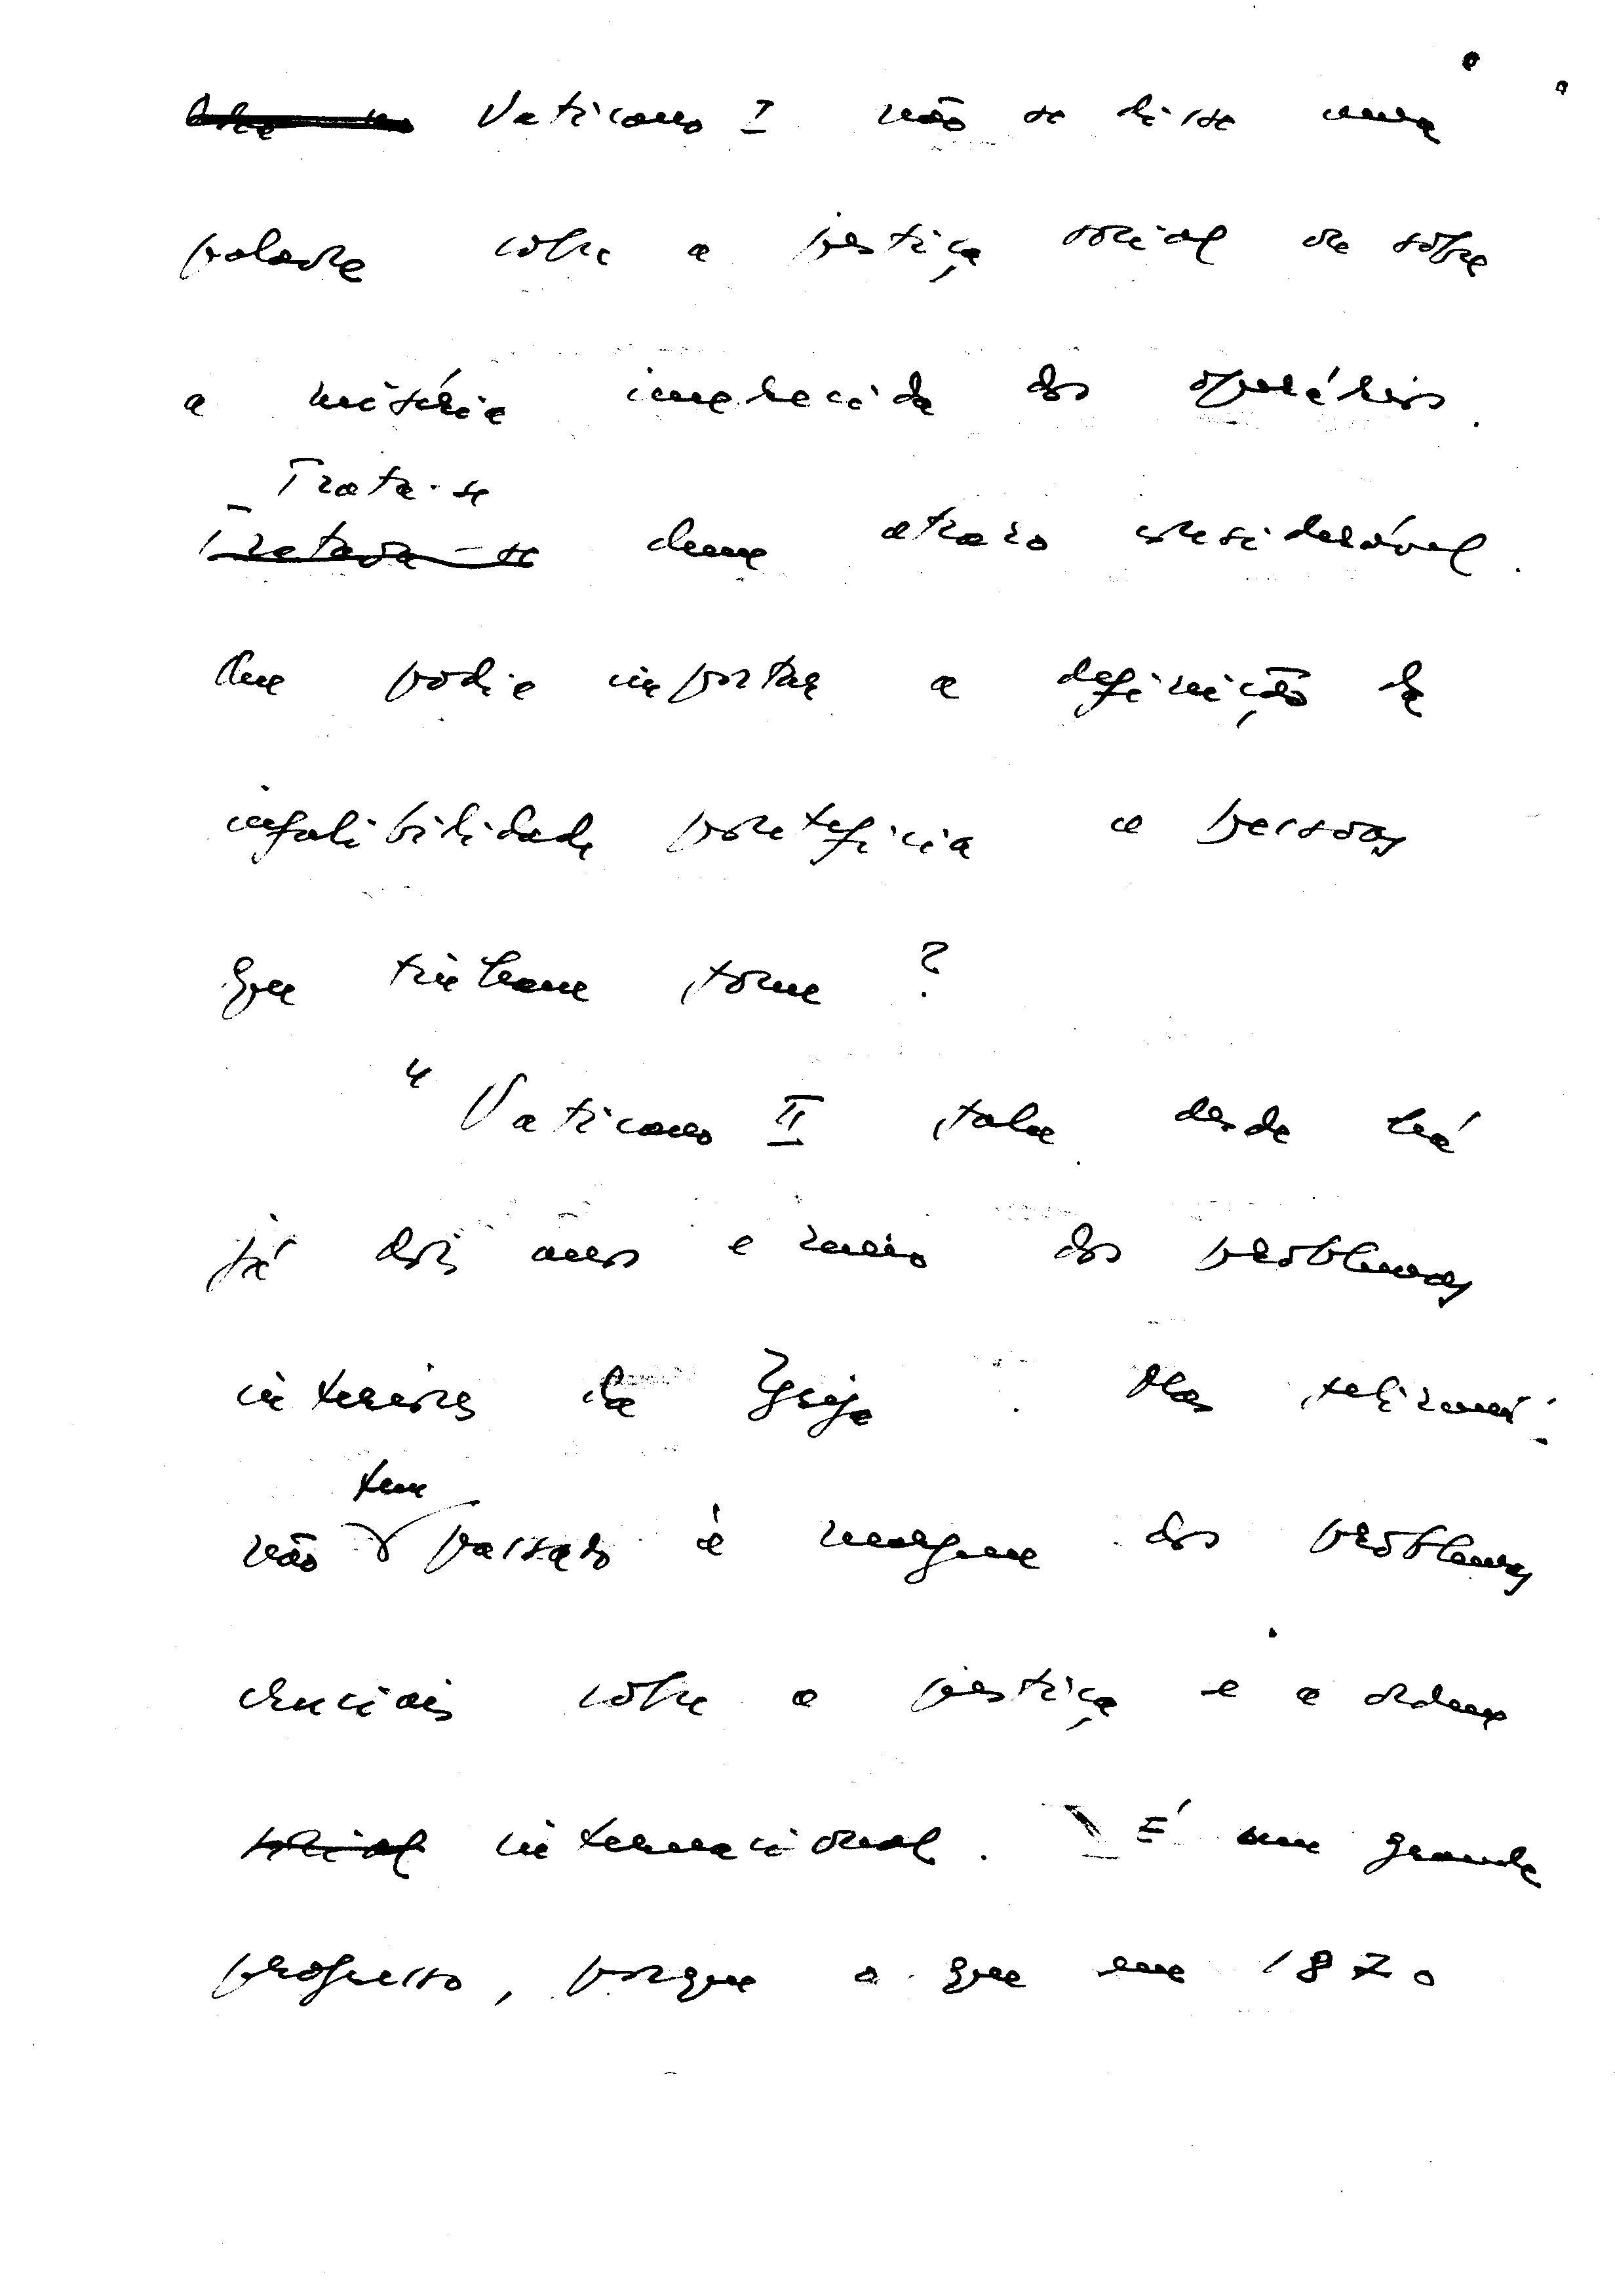 Vaticano I não se disse uma
palavra sobre a justiça social ou sôbre
a miséria imerecida dos operários.
Trata-se
Tratava-se dum atrazo considerável.
Que podia importar a definição da
infalibilidade pontifícia a pessoas
que tinham fome?
" Vaticano II fala desde há
já dois anos e meio dos problemas
interiores da Igreja. Mas felizmente
tem
não passado à margem dos problemas
cruciais sobre a justiça e a ordem
social internacional. É um grande
progresso, porque o que em 1870